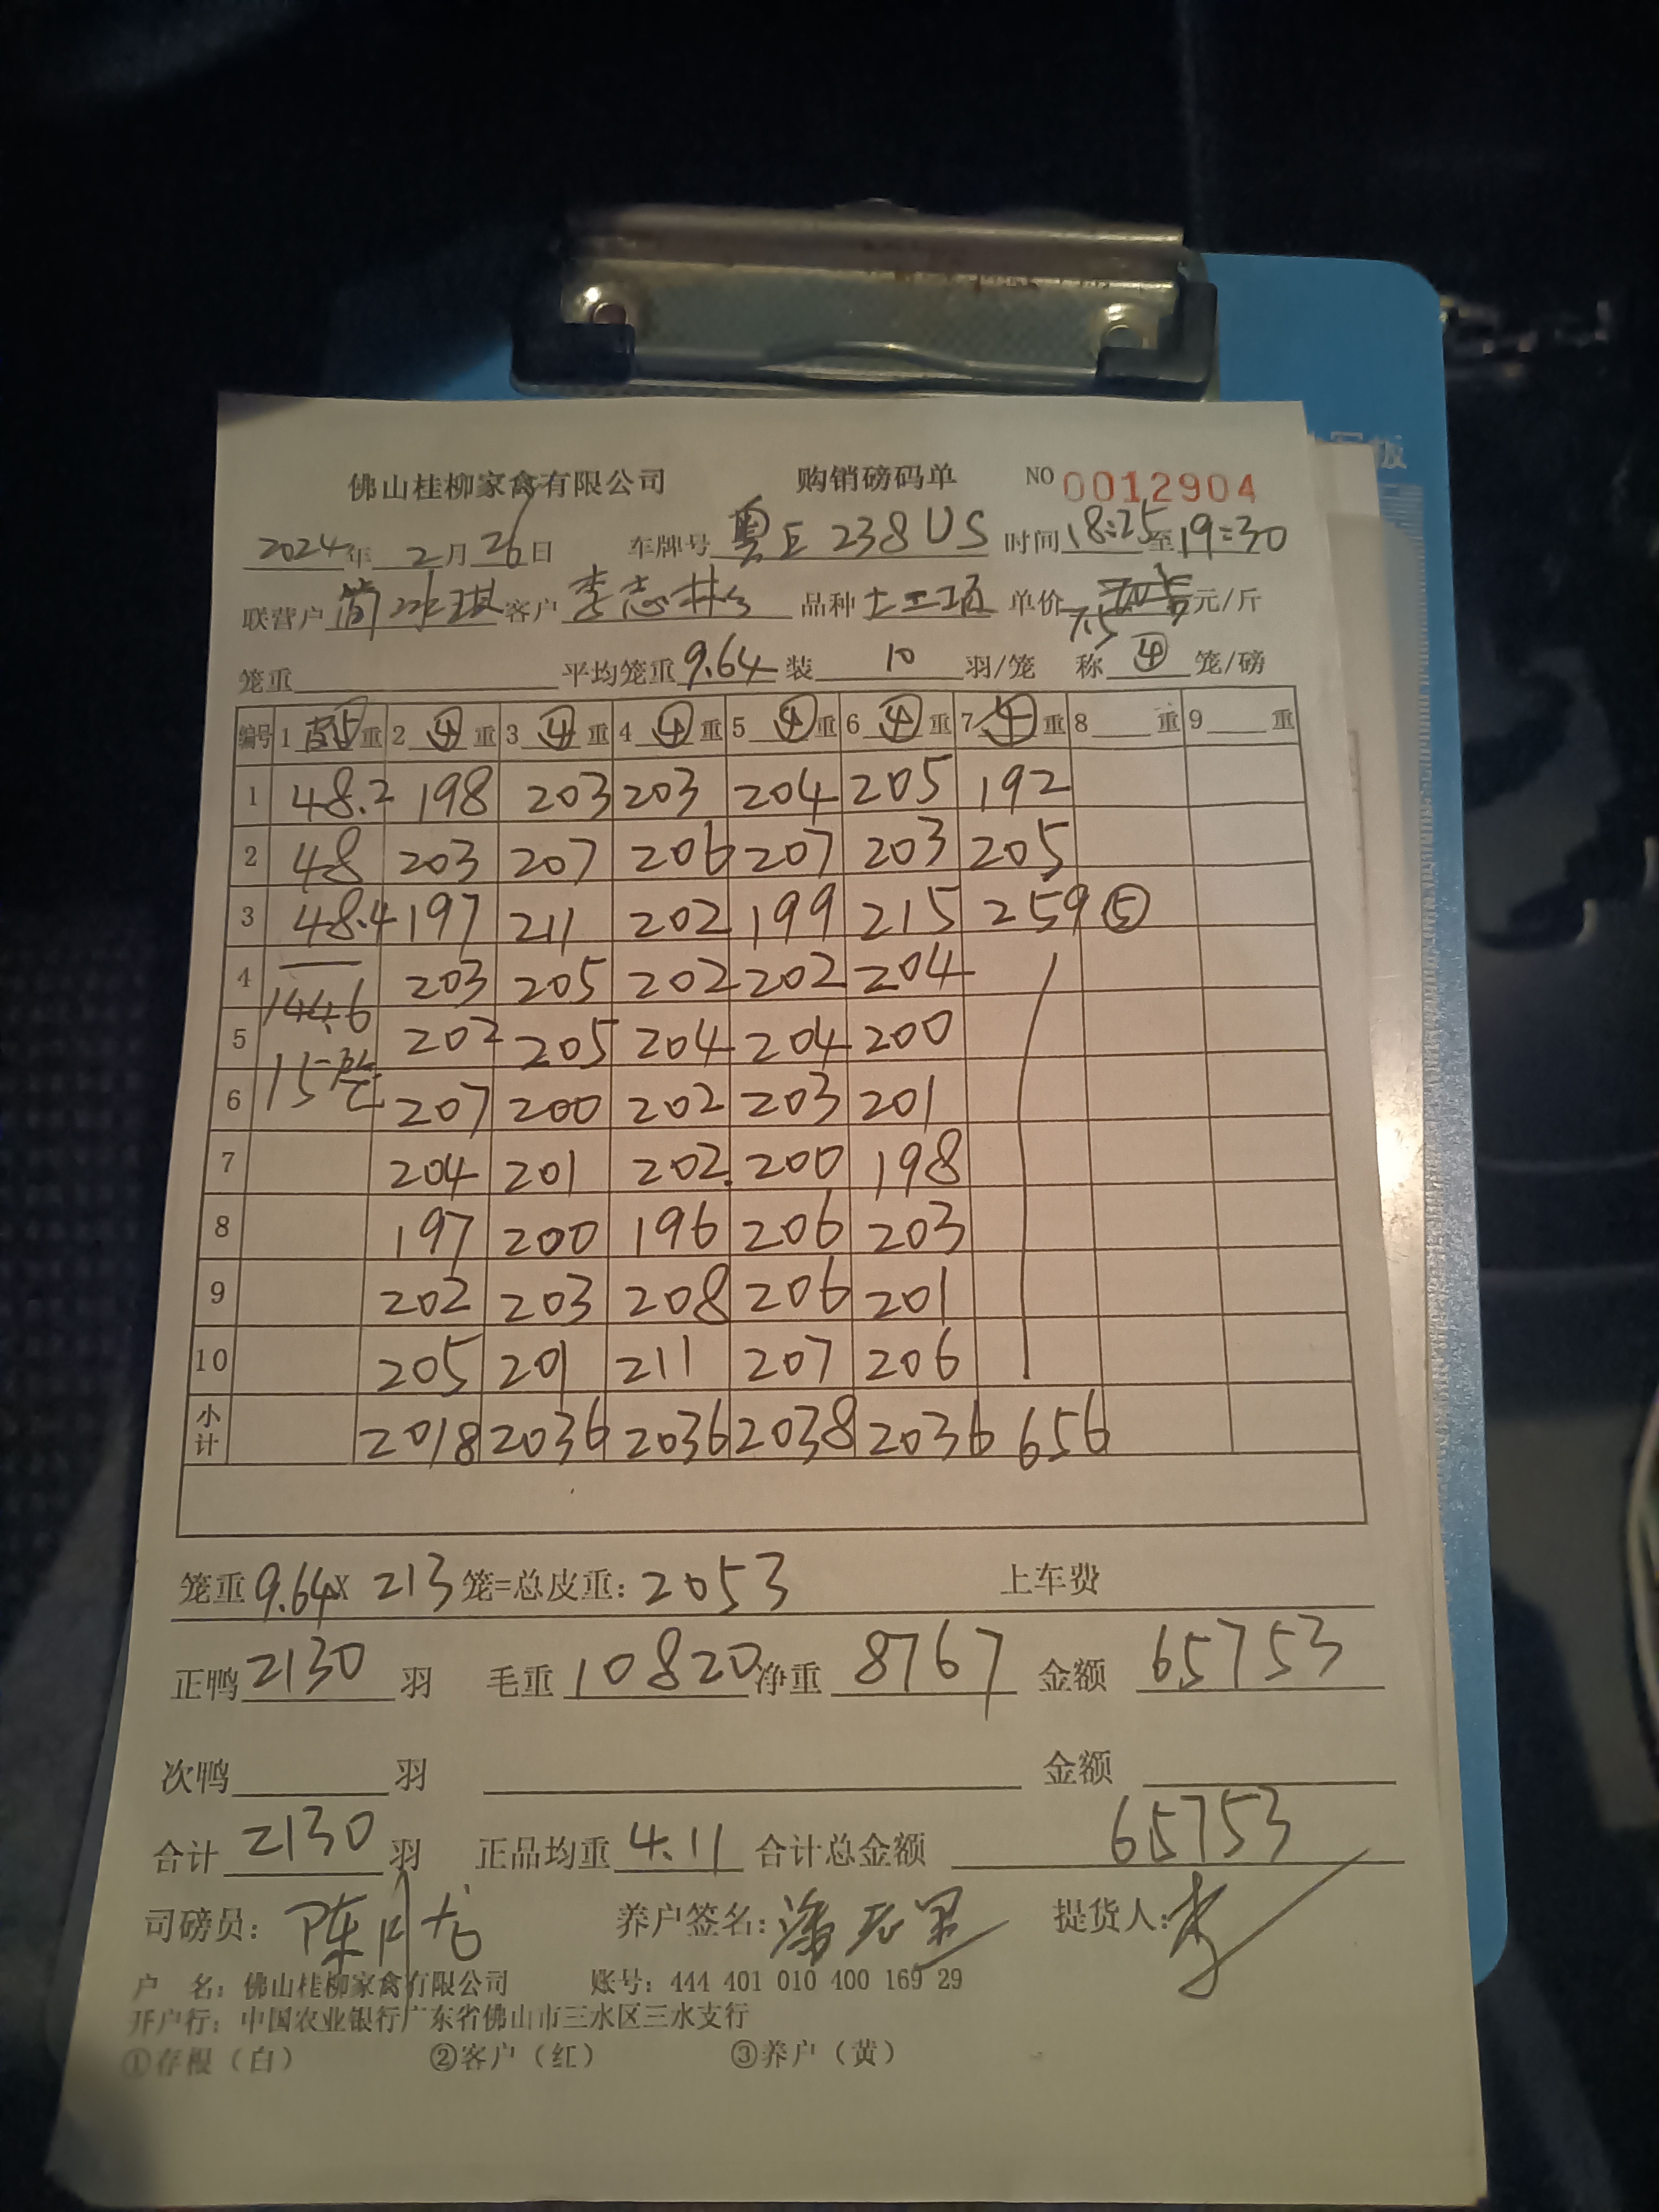 佛山桂柳家禽有限公司 购销磅码单 NO 0012904
2024年 2月 26日 车牌号 粤E 238US 时间 18:25 至 19:30
联营户 简冰琪 客户 李志林 品种 土二项 单价 7.5 元/斤
笼重 平均笼重 9.64 装 10 羽/笼 称 ④ 笼/磅
编号 1 皮⑤ 重 2 ④ 重 3 ④ 重 4 ④ 重 5 ④ 重 6 ④ 重 7 ④ 重 8 重 9 重
1 48.2 198 203 203 204 205 192
2 48 203 207 206 207 203 205
3 48.4 197 211 202 199 215 259 ⑤
4 144.6 203 205 202 202 204
5 202 205 204 204 200
6 15笼 207 200 202 203 201
7 204 201 202. 200 198
8 197 200 196 206 203
9 202 203 208 206 201
10 205 201 211 207 206
小计 2018 2036 2036 2038 2036 656
笼重 9.64 X 213 笼=总皮重: 2053 上车费
正鸭 2130 羽 毛重 10820 净重 8767 金额 65753
次鸭 羽 金额
合计 2130 羽 正品均重 4.11 合计总金额 65753
司磅员: 陈 养户签名: 潘 提货人: 李
户 名: 佛山桂柳家禽有限公司 账号: 444 401 010 400 169 29
开户行: 中国农业银行广东省佛山市三水区三水支行
①存根（白） ②客户（红） ③养户（黄）